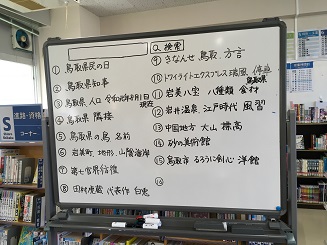 検索
① 鳥取県民の日
② 鳥取県知事
③ 鳥取県 人口 令和6年4月1日
現在
④ 鳥取県 隣接
⑤ 鳥取県の鳥 名前
⑥ 岩美町、地形、山陰海岸
⑦
⑧ 田村虎蔵 代表作 白兎
⑨ きなんせ 鳥取 方言
⑩ トワイライトエクスプレス 瑞風 停車
鳥取県
⑪ 岩美八宝 八種類 食材
⑫ 岩井温泉、江戸時代 風習
⑬ 中国地方 大山 標高
⑭ 砂の美術館
⑮ 鳥取市 るろうに剣心 洋館
⑯
進路・資格
S
コーナー